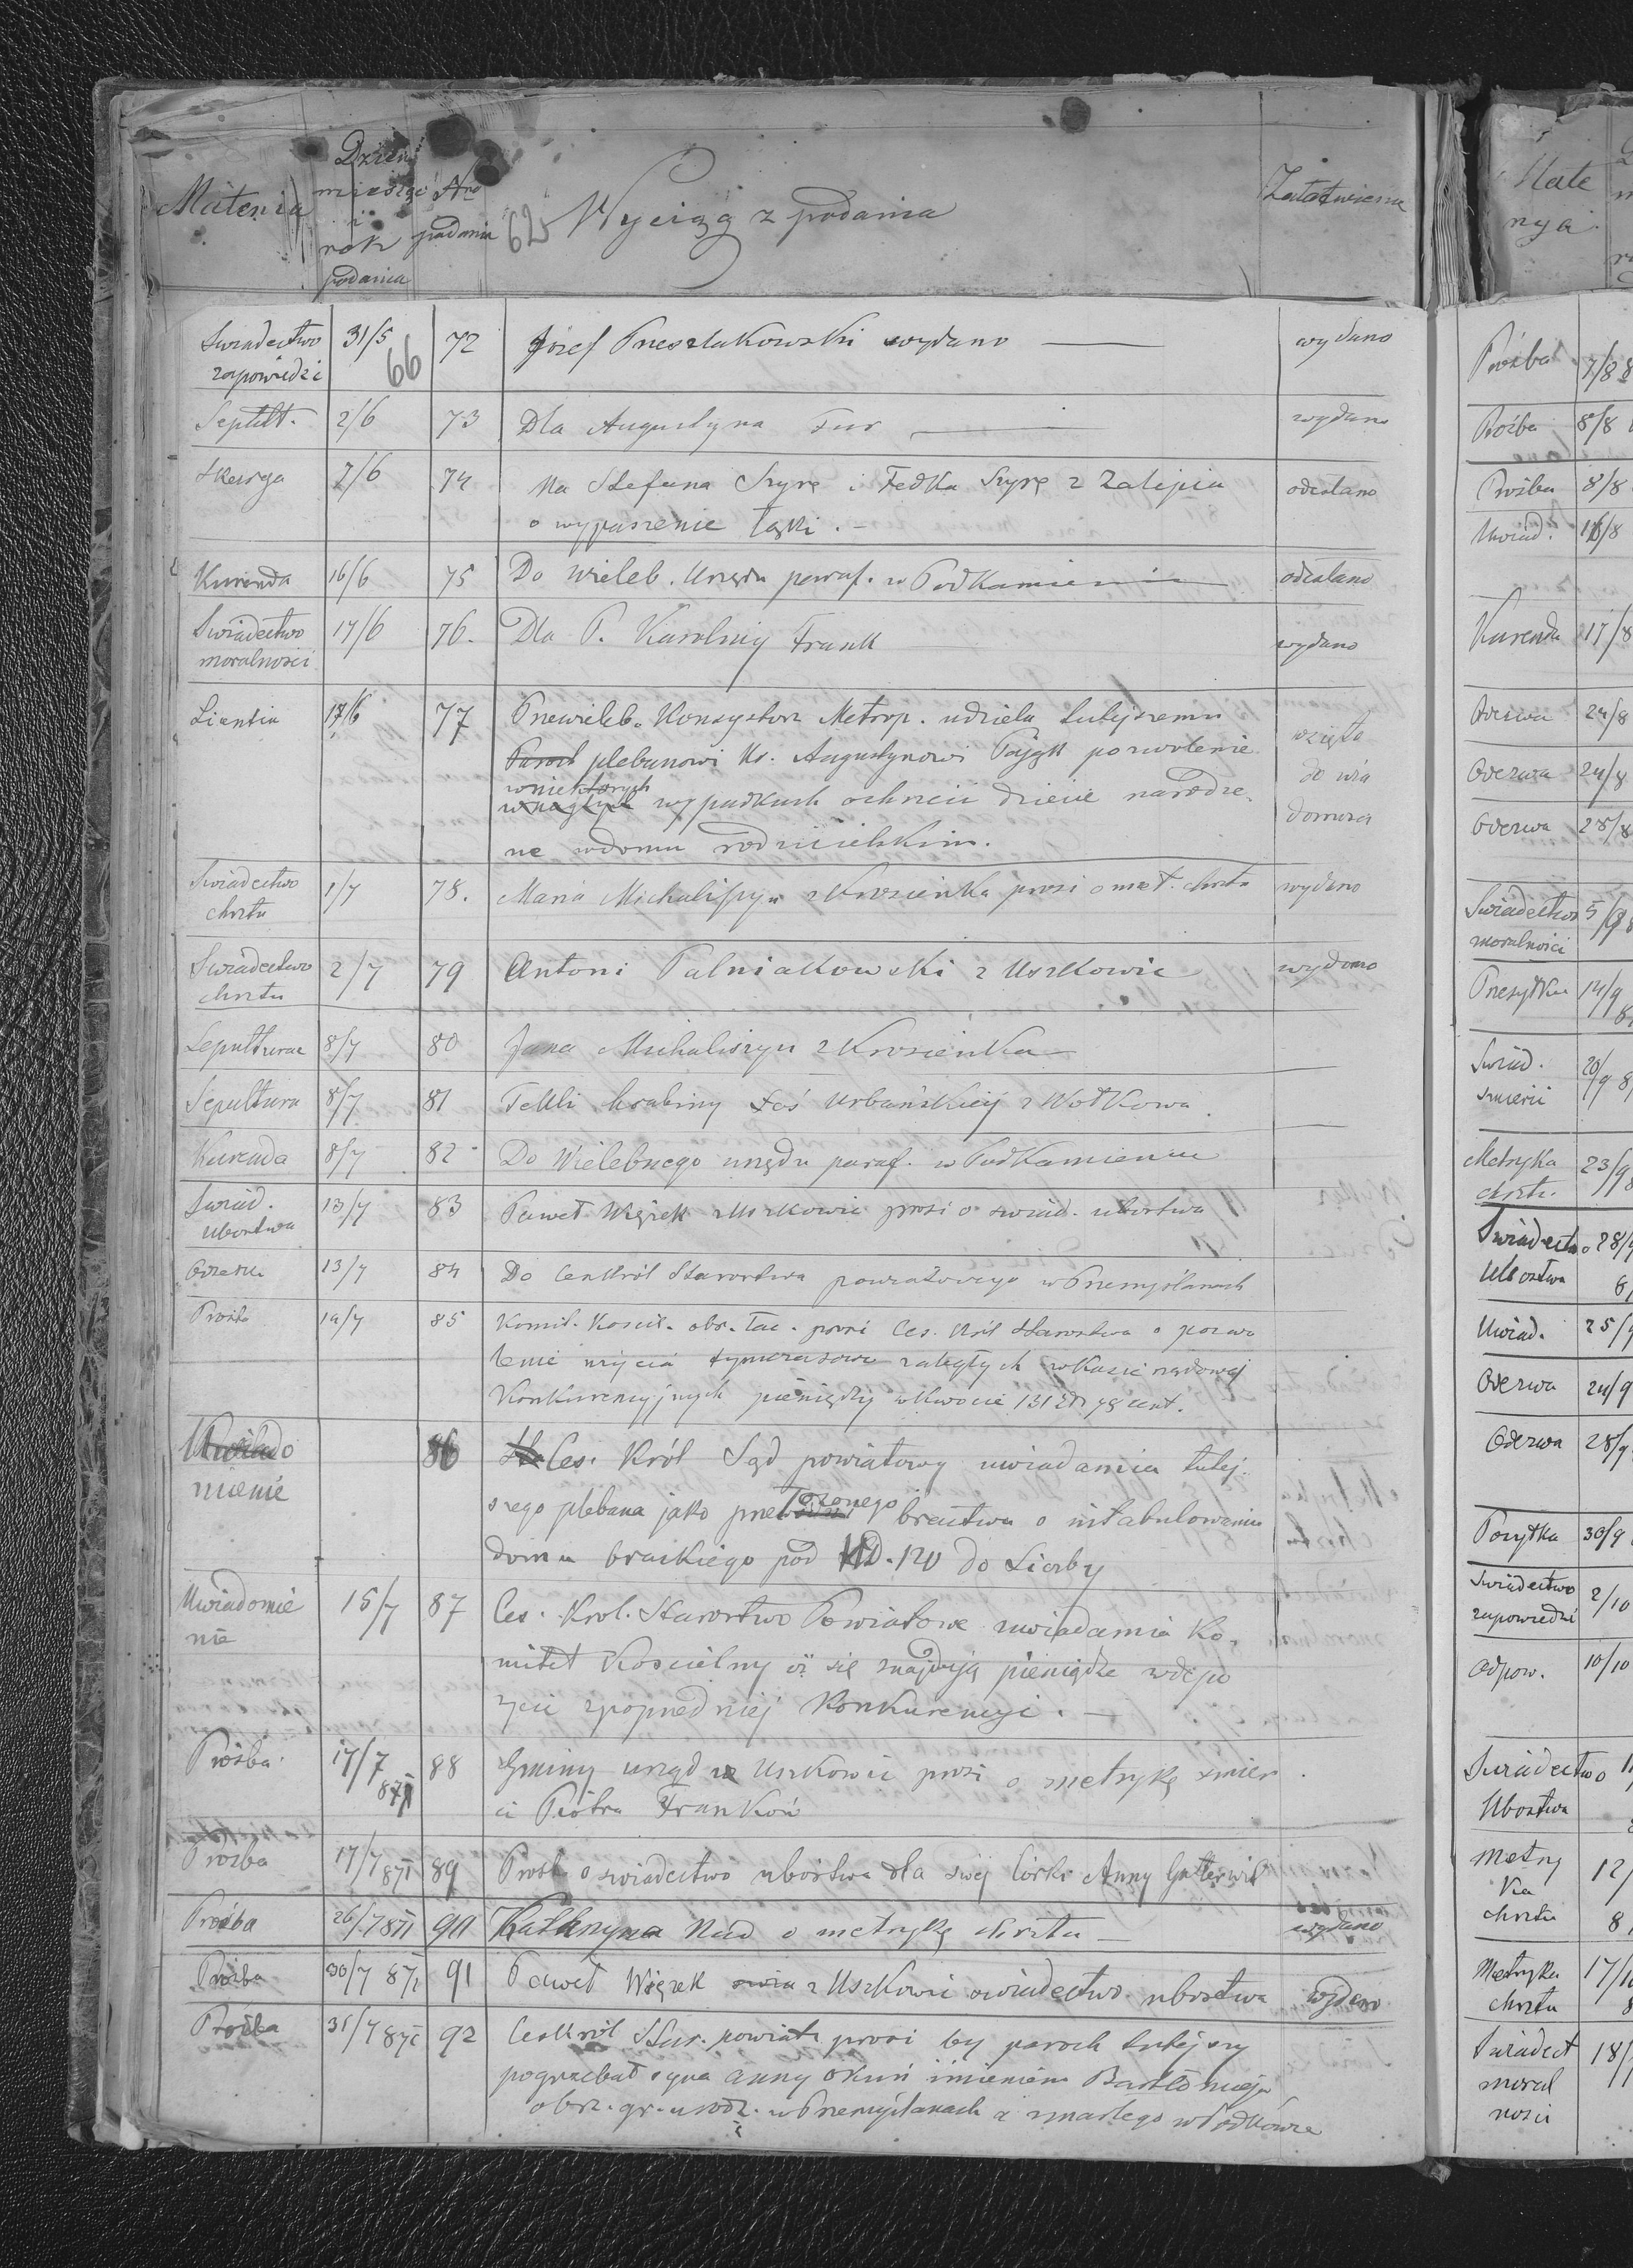 Materia
Dzień miesiąc i rok podania
Nro podania
62
Wyciąg z podania
Załatwienie
Swiadectwo zapowiedzi 31/5 66 72 Józef Przeszlakowski wydano — wydano
Sepult. 2/6 73 Dla Augustyna Fur — wydano
Skarga 7/6 74 Na Stefana Szyrę i Fedka Szyrę z Zalipia odesłano
o wypaszenie łąki. —
Kurenda 16/6 75 Do Wieleb. Urzędu paraf. w Podkamieniu odesłano
Swiadectwo moralności 17/6 76. Dla P. Karoliny Frank wydano
77 Przewieleb. Konsystorz Metrop. udziela tutejszemu wzięto
plebanowi Ks. Augustynowi pozwolenie do
w niektórych wypadkach ochrzcić dziecię narodzo
ne w domu rodzicielskim.
Swiadectwo chrztu 1/7 78. Maria Michaliszyn z Krosienka prosi o met. chrztu wydano
Swiadectwo chrztu 2/7 79 Antoni Palniakowski z Uszkowic wydano
Sepultura 8/7 80 Jana Michaliszyn z Krosienka
Sepultura 8/7 81 Tekli hrabiny Łoś Urbańskiej z Wołkowa.
Kurenda 8/7 82 Do Wielebnego urzędu paraf. w Podkamieniu
Swiad. ubóstwa 13/7 83 Paweł Więzek z Uszkowic prosi o swiad. ubóstwa
Odezwa 13/7 84 Do Ces Król Starostwa powiatowego w Przemyślanach
Prośba 14/7 85 Komit. Kościł. obr. łac. prosi Ces. Król Starostwa o pozwo
lenie użycia tymczasowo zaległych w kasie rządowej
Konkurencyjnych pieniędzy w kwocie 131 złr 78 cent.
Uwiado mienie 86 Ces. Król Sąd powiatowy uwiadamia tutej-
szego plebana jako przełożonego bractwa o intabulowaniu
domu brackiego pod ND. 120 do Liczby
Uwiadomie nie 15/7 87 Ces. Krol. Starostwo Powiatowe uwiadamia Ko-
mitet Kościelny iż się znajdują pieniądze w depo
zycie z poprzedniej Konkurencyi. —
Prośba 17/7 871 88 Gminy urząd w Uszkowic prosi o metrykę śmier
ci Piotra Franków
Prośba 17/7 871 89 Prośb. o swiadectwo ubóstwa dla swej córki Anny
Prośba 26/7 871 90 Katarzyna Nad o metrykę chrztu — wydano
Prośba 30/7 871 91 Paweł Więzek z Uszkowic swiadectwo ubóstwa wydano
Prośba 31/7 871 92 Ces Król Star. powiat. prosi by paroch tutejszy
pogrzebał syna Anny Okuń imieniem Bartłomieja
obrz. gr. urodz. w Przemyślanach a zmarłego w
Mate
rya
Prośba 7/8
Prośba 8/8
Prośba 8/8
Uwiad. 16/8
Kurenda 17/8
Odezwa 24/8
Odezwa 24/8
Odezwa 28/8
Swiadectwo 5/9
moralności
Przesyłka 14/9
Swiad. 20/9
śmierci
Metryka 23/9
chrztu
Swiadectwo 28/9
Ubóstwa
Uwiad. 25/9
Odezwa 24/9
Odezwa 28/9
Posyłka 30/9
Swiadectwo 2/10
zapowiedzi
Odpow. 10/10
Swiadectwo
Ubóstwa
Metry 12/
ka
chrztu
Metryka 17/10
chrztu
Swiadect 18/
moral
ności